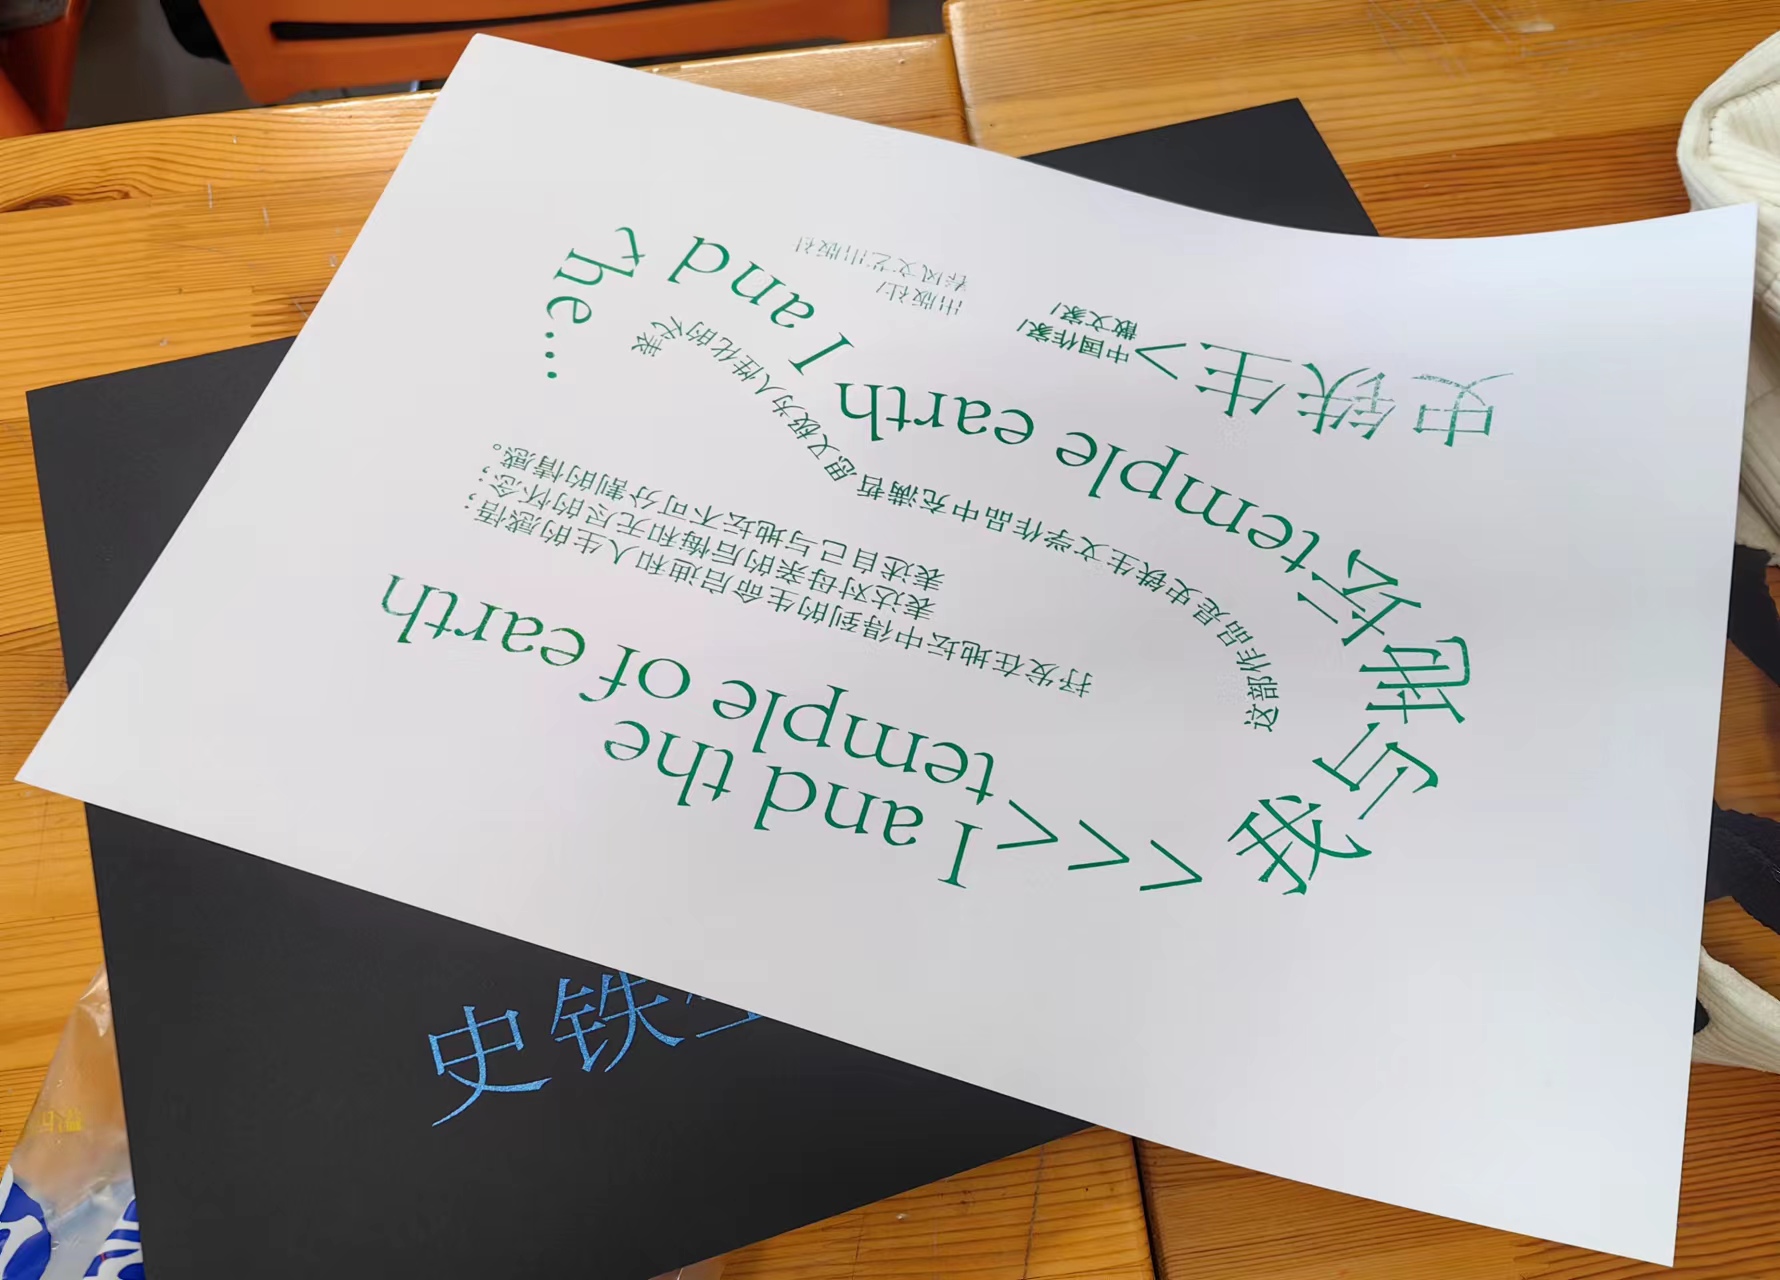 <<<I and the
temple of earth
我与地坛 temple earth I and the...
抒发在地坛中得到的生命启迪和人生的感悟;
表达对母亲的后悔和无尽的怀念;
表述自己与地坛不可分割的情感。
这部作品是史铁生文学作品中充满哲思又极为人性化的代表
史铁生>
中国作家/
散文家/
出版社/
春风文艺出版社
史铁